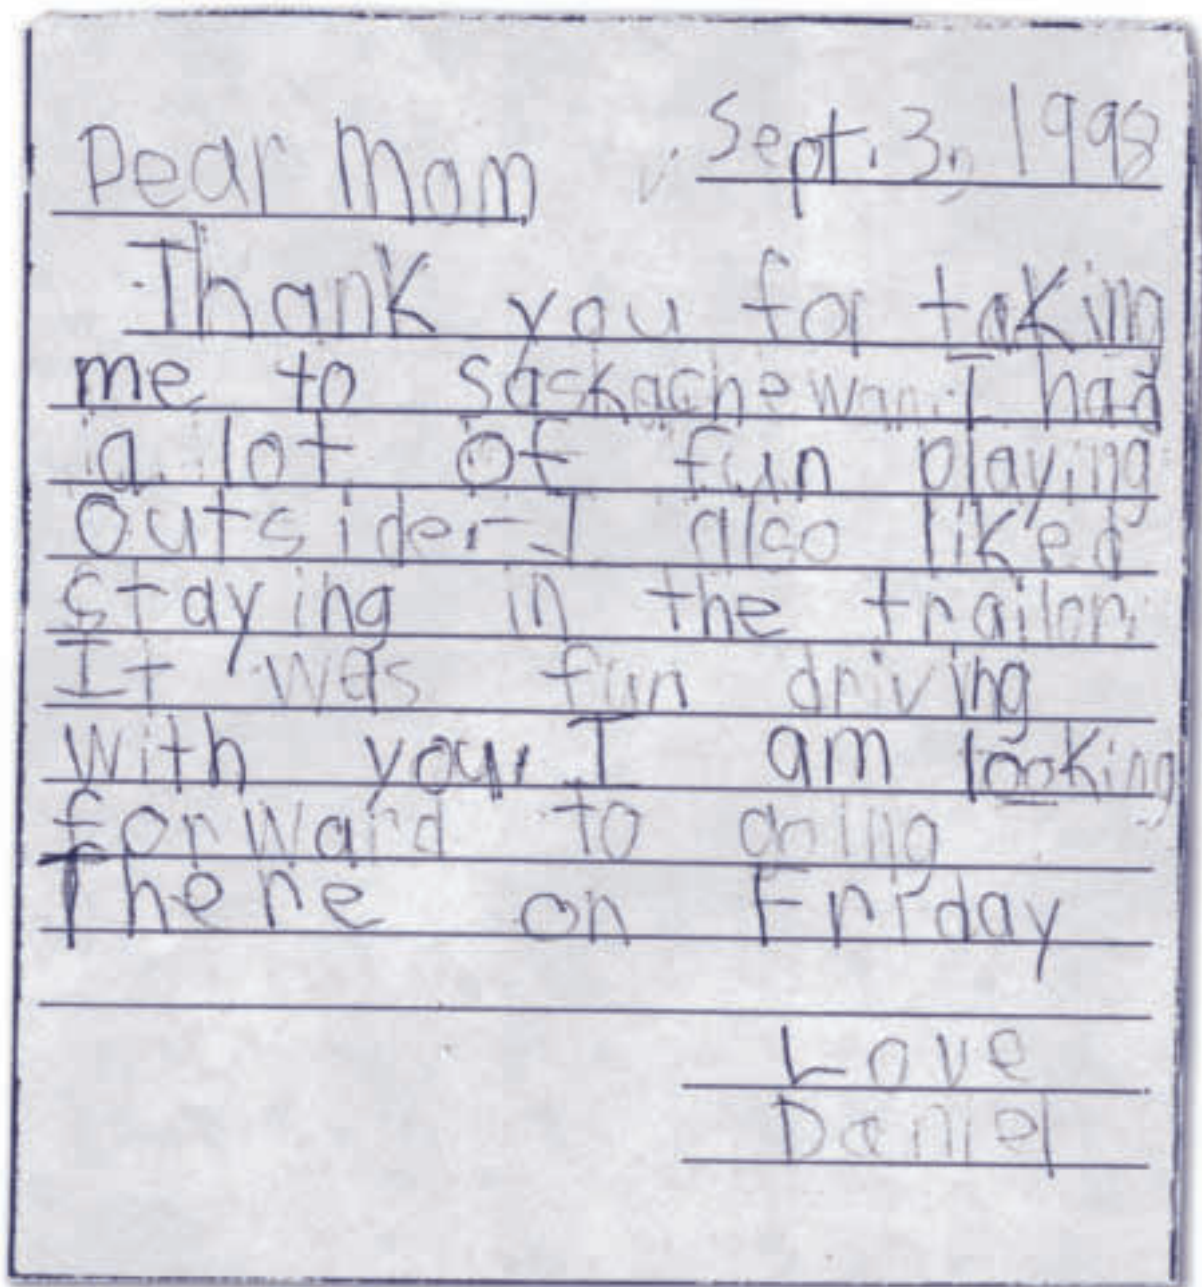 Sept. 3, 1998
Dear Mom
Thank you for taking
me to Saskachewan. I had
a lot of fun playing
outside. I also liked
staying in the trailor.
It was fun driving
with you. I am looking
forward to going
There on Friday
Love
Daniel